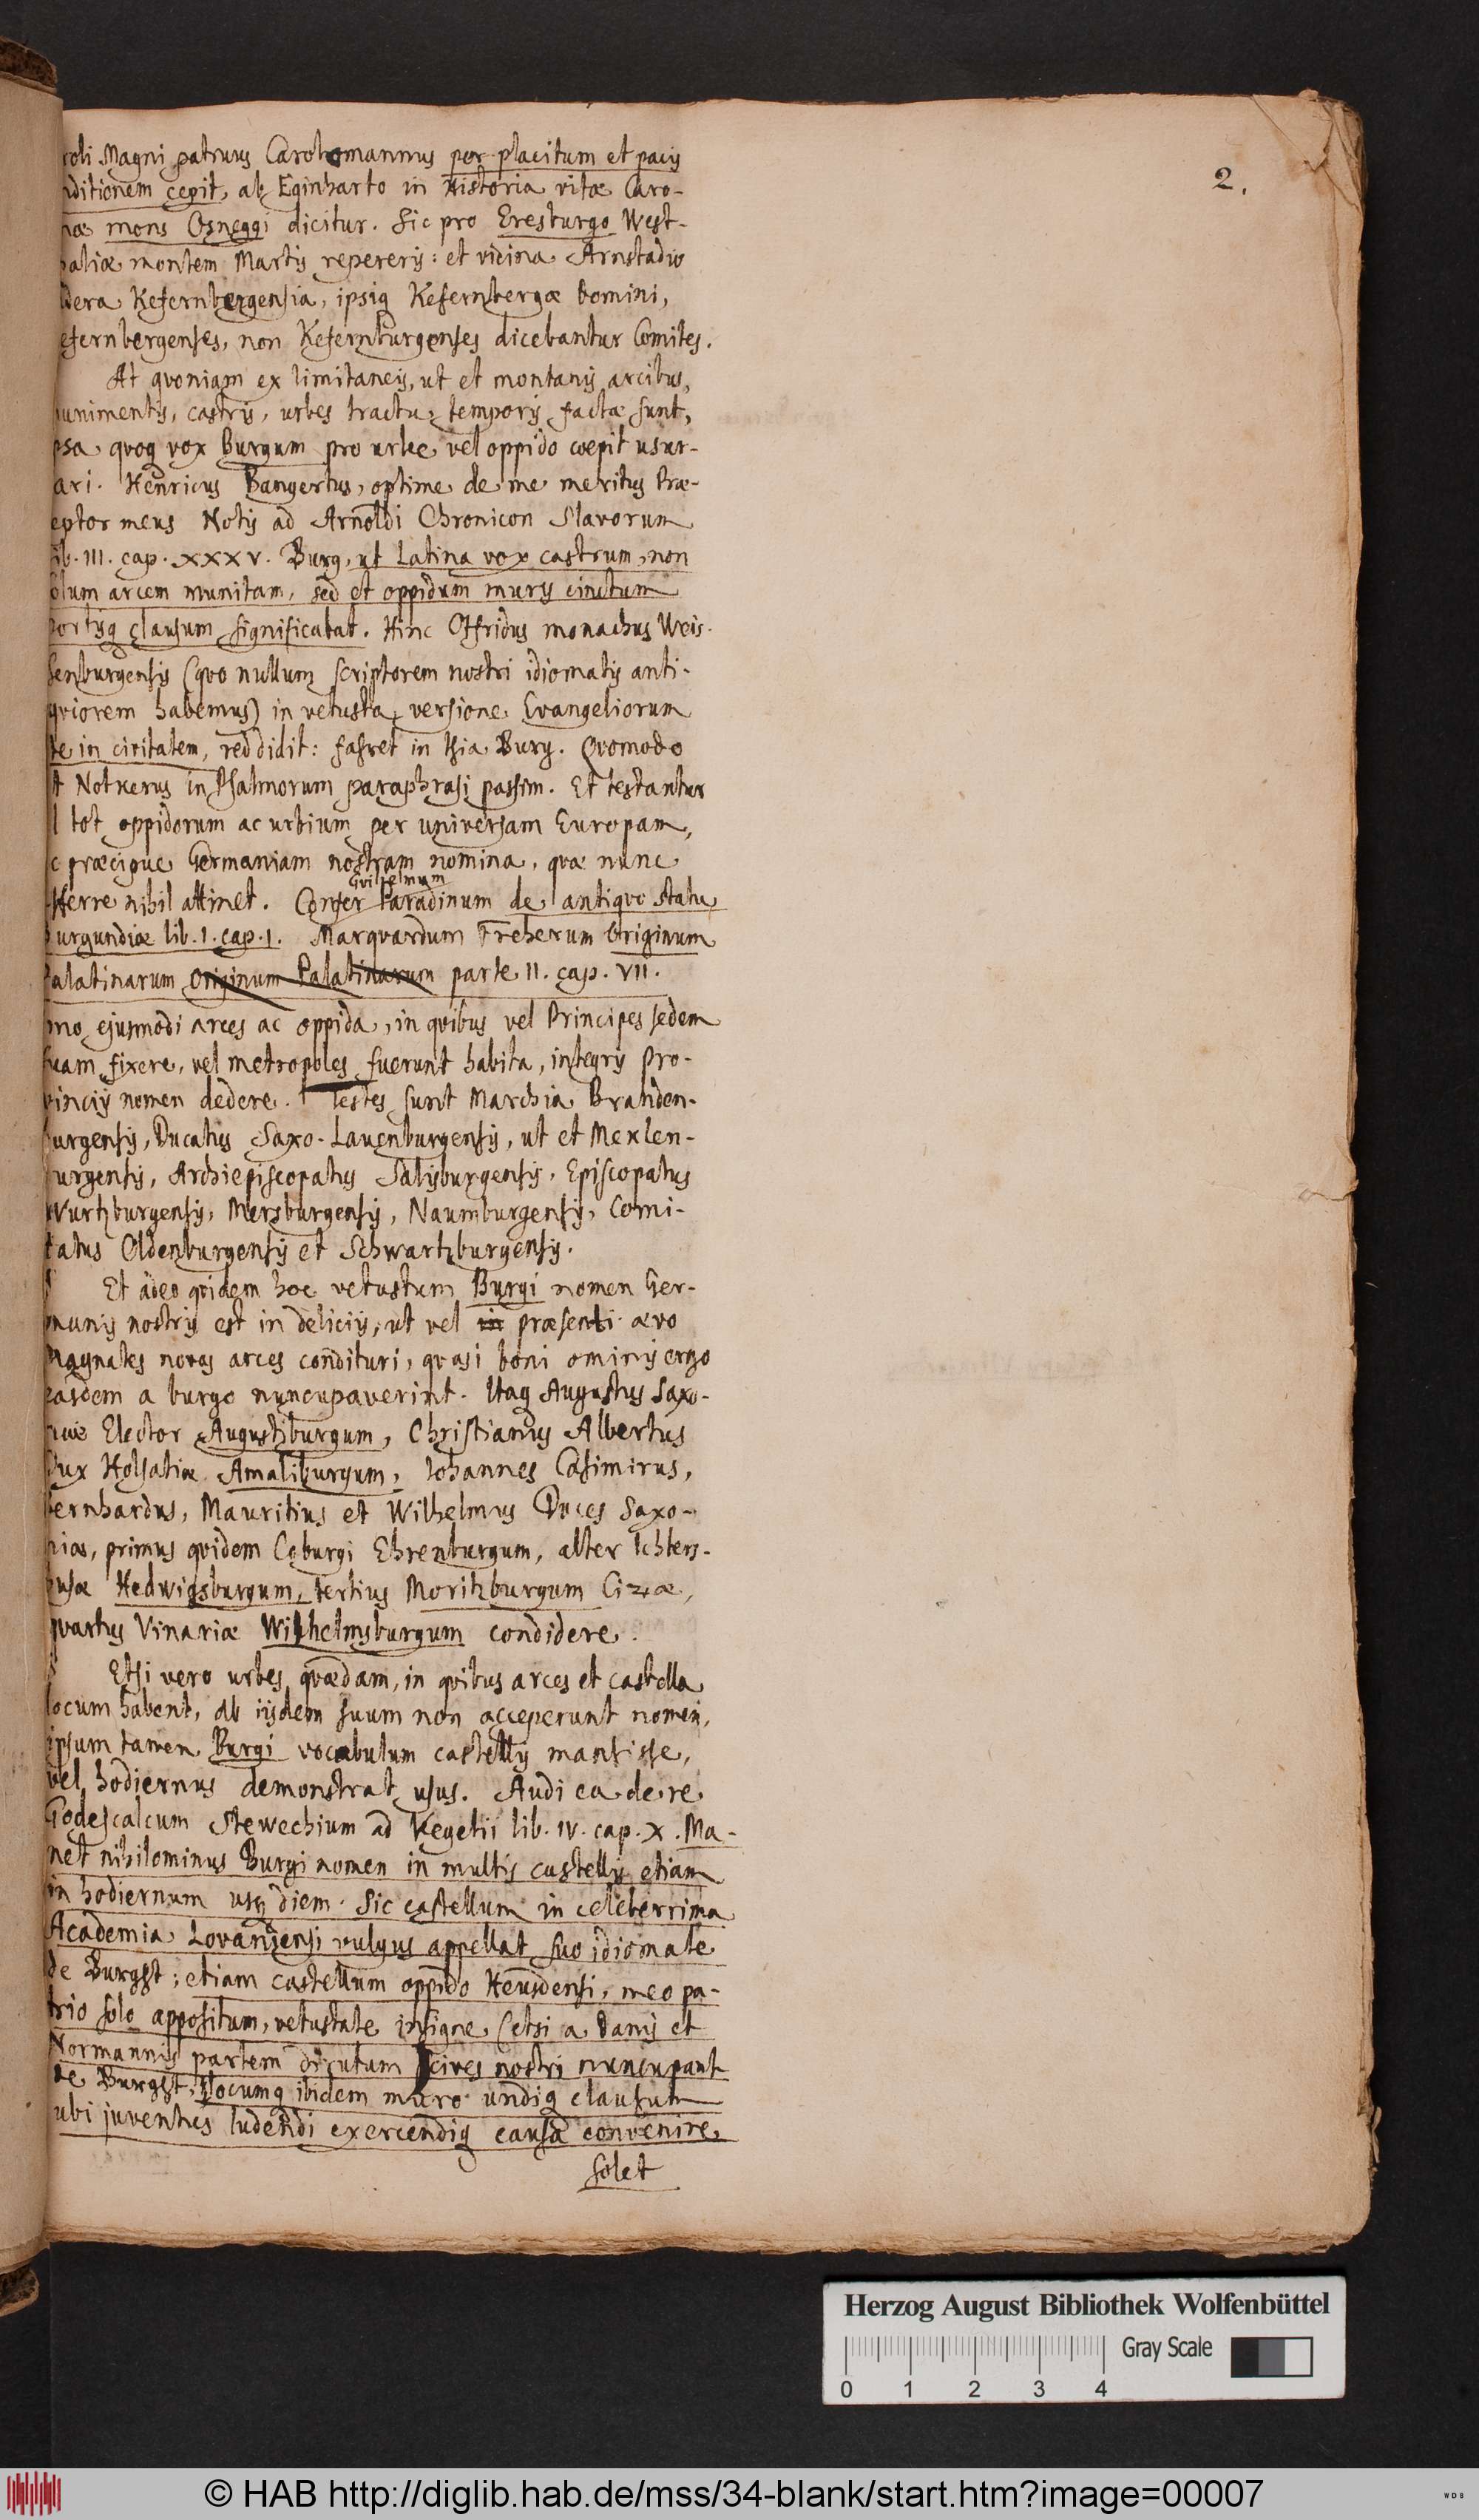 2.
roli Magni patruus Carolomannus per placitum et pacis
nditionem cepit, ab Eginharto in Historia vitæ Caro-
næ mons Osneggi dicitur. Sic pro Eresburgo West-
paliæ montem Martis repereris: et vicina Arnstadio
dera Kefernbergensia, ipsiq Kefernbergæ Domini,
efernbergenses, non Kefernburgenses dicebantur Comites.
At qvoniam ex limitaneis, ut et montanis arcibus,
unimentis, castris, urbes tractu temporis factæ sunt,
psa qvoq vox Burgum pro urbe vel oppido coepit usur-
ari. Henricus Bangertus, optime de me meritus Præ-
eptor meus Notis ad Arnoldi Chronicon Slavorum
ib. III. cap. XXXV. Burg, ut Latina vox castrum, non
olum arcem munitam, sed et oppidum muris cinctum
portisq clausum significabat. Hinc Otfridus monachus Weis-
senburgensis (qvo nullum scriptorem nostri idiomatis anti-
qviorem habemus) in vetusta versione Evangeliorum
te in civitatem, reddidit: fahret in thia Burg. Qvomodo
t Notkerus in Psalmorum paraphrasi passim. Et testantur
l tot oppidorum ac urbium per universam Europam,
c præcipue Germaniam nostram nomina, qvæ nunc
fferre nihil attinet. Confer Gvilhelmum Paradinum de antiqvo statu
Burgundiæ lib. 1. cap. 1. Marqvardum Freherum Originum
Palatinarum Originum Palatinarum parte II. cap. VII.
mo ejusmodi arces ac oppida, in qvibus vel Principes sedem
suam fixere, vel metropoles fuerunt habita, integris pro-
vinciis nomen dedere. Testes sunt Marchia Branden-
burgensis, Ducatus Saxo-Lauenburgensis, ut et Meklen-
burgensis, Archiepiscopatus Salisburgensis, Episcopatus
Wurtzburgensis, Mersburgensis, Naumburgensis, Comi-
tatus Oldenburgensis et Schwartzburgensis.
Et adeo qvidem hoc vetustum Burgi nomen Ger-
manis nostris est in deliciis, ut vel in præsenti ævo
Magnates novas arces condituri, qvasi boni ominis ergo
easdem a burgo nuncupaverint. Itaq Augustus Saxo-
niæ Elector Augustiburgum, Christianus Albertus
Dux Holsatiæ Amaliburgum, Iohannes Casimirus,
Bernhardus, Mauritius et Wilhelmus Duces Saxo-
niæ, primus qvidem Coburgi Ehrenburgum, alter Ichters-
husæ Hedwigsburgum, tertius Moritzburgum Cizæ,
qvartus Vinariæ Wilhelmsburgum condidere.
Etsi vero urbes qvædam, in qvibus arces et castella
locum habent, ab iisdem suum non acceperunt nomen,
ipsum tamen Burgi vocabulum castellis mansisse,
vel hodiernus demonstrat usus. Audi ea de re
Godescalcum Stewechium ad Vegetii lib. IV. cap. X. Ma-
net nihilominus Burgi nomen in multis castellis etiam
in hodiernum usq diem. Sic castellum in celeberrima
Academia Lovaniensi vulgus appellat suo idiomate
de Burgst; etiam castellum oppido Heusdensi, meo pa-
trio solo appositum, vetustate insigne (etsi a Danis et
Normannis partem dirutum) cives nostri nuncupant
de Burgst, locumq ibidem muro undiq clausum
ubi juventus ludendi exercendiq causa convenire
solet
Herzog August Bibliothek Wolfenbüttel
Gray Scale
0 1 2 3 4
© HAB http://diglib.hab.de/mss/34-blank/start.htm?image=00007
WDB